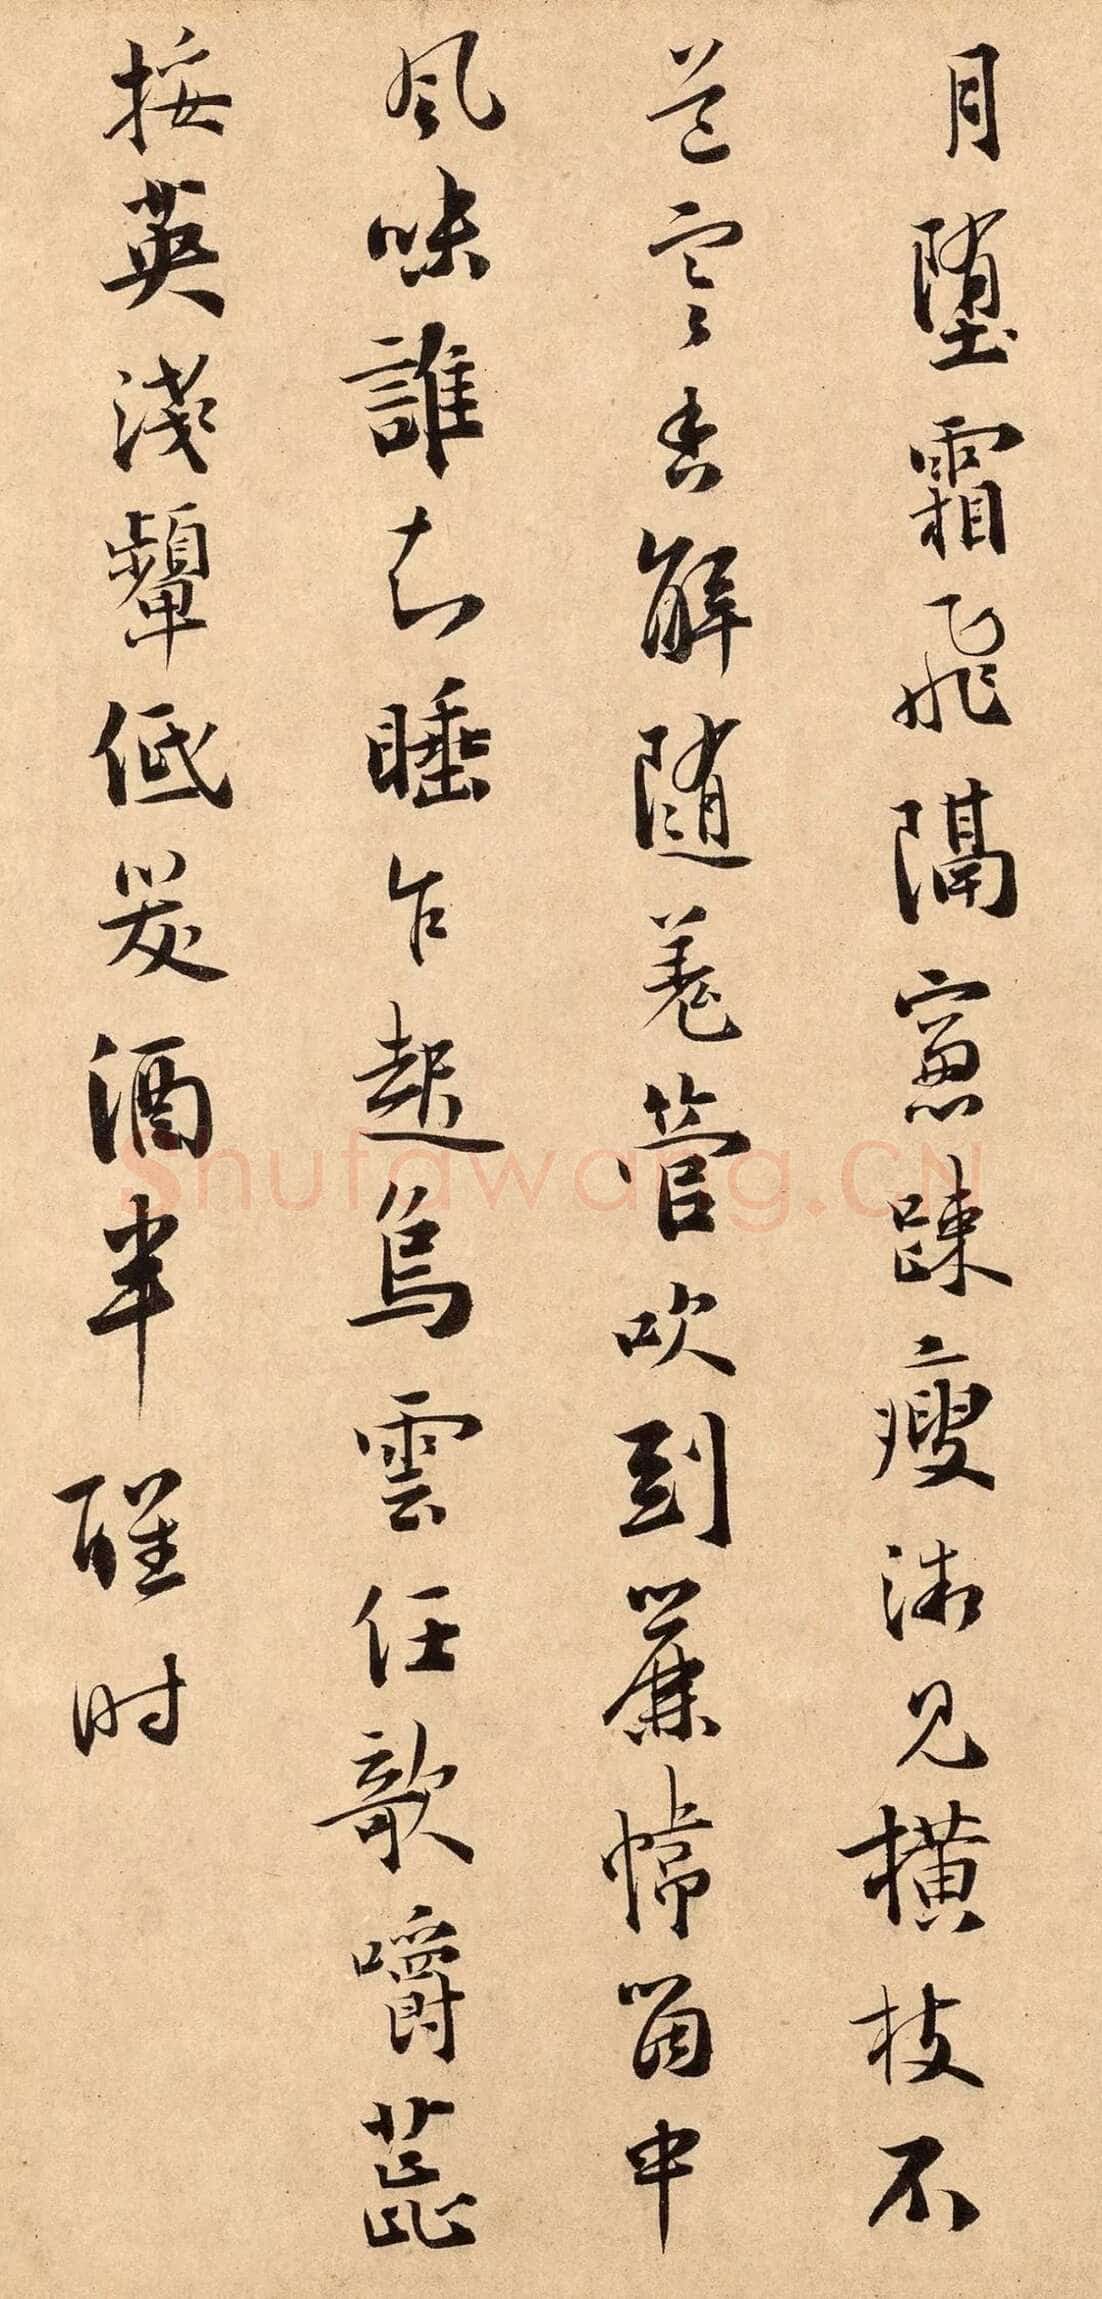 月墮霜飛隔窻踈瘦微見橫枝不
道寒香解隨羌管吹到簾幃箇中
風味誰知睡乍起烏雲任欹嚼蕋
挼英淺顰低笑酒半醒时
Shufawang.CN